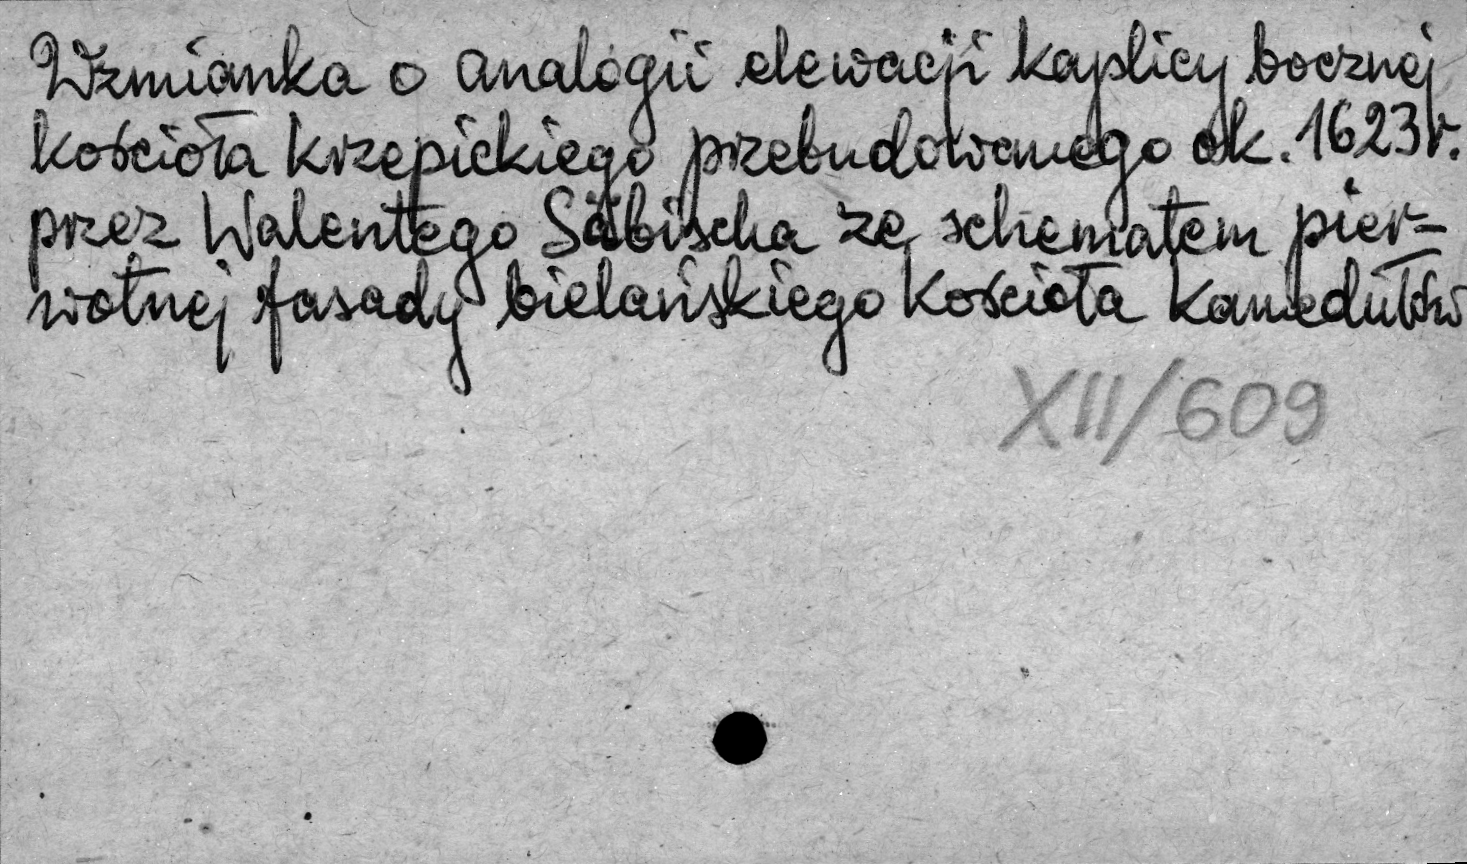 Wzmianka o analogii elewacji kaplicy bocznej
kościoła krzepickiego przebudowanego ok. 1623 r.
przez Walentego Säbischa ze schematem pier=
wotnej fasady bielańskiego kościoła kamedułów
XII/609